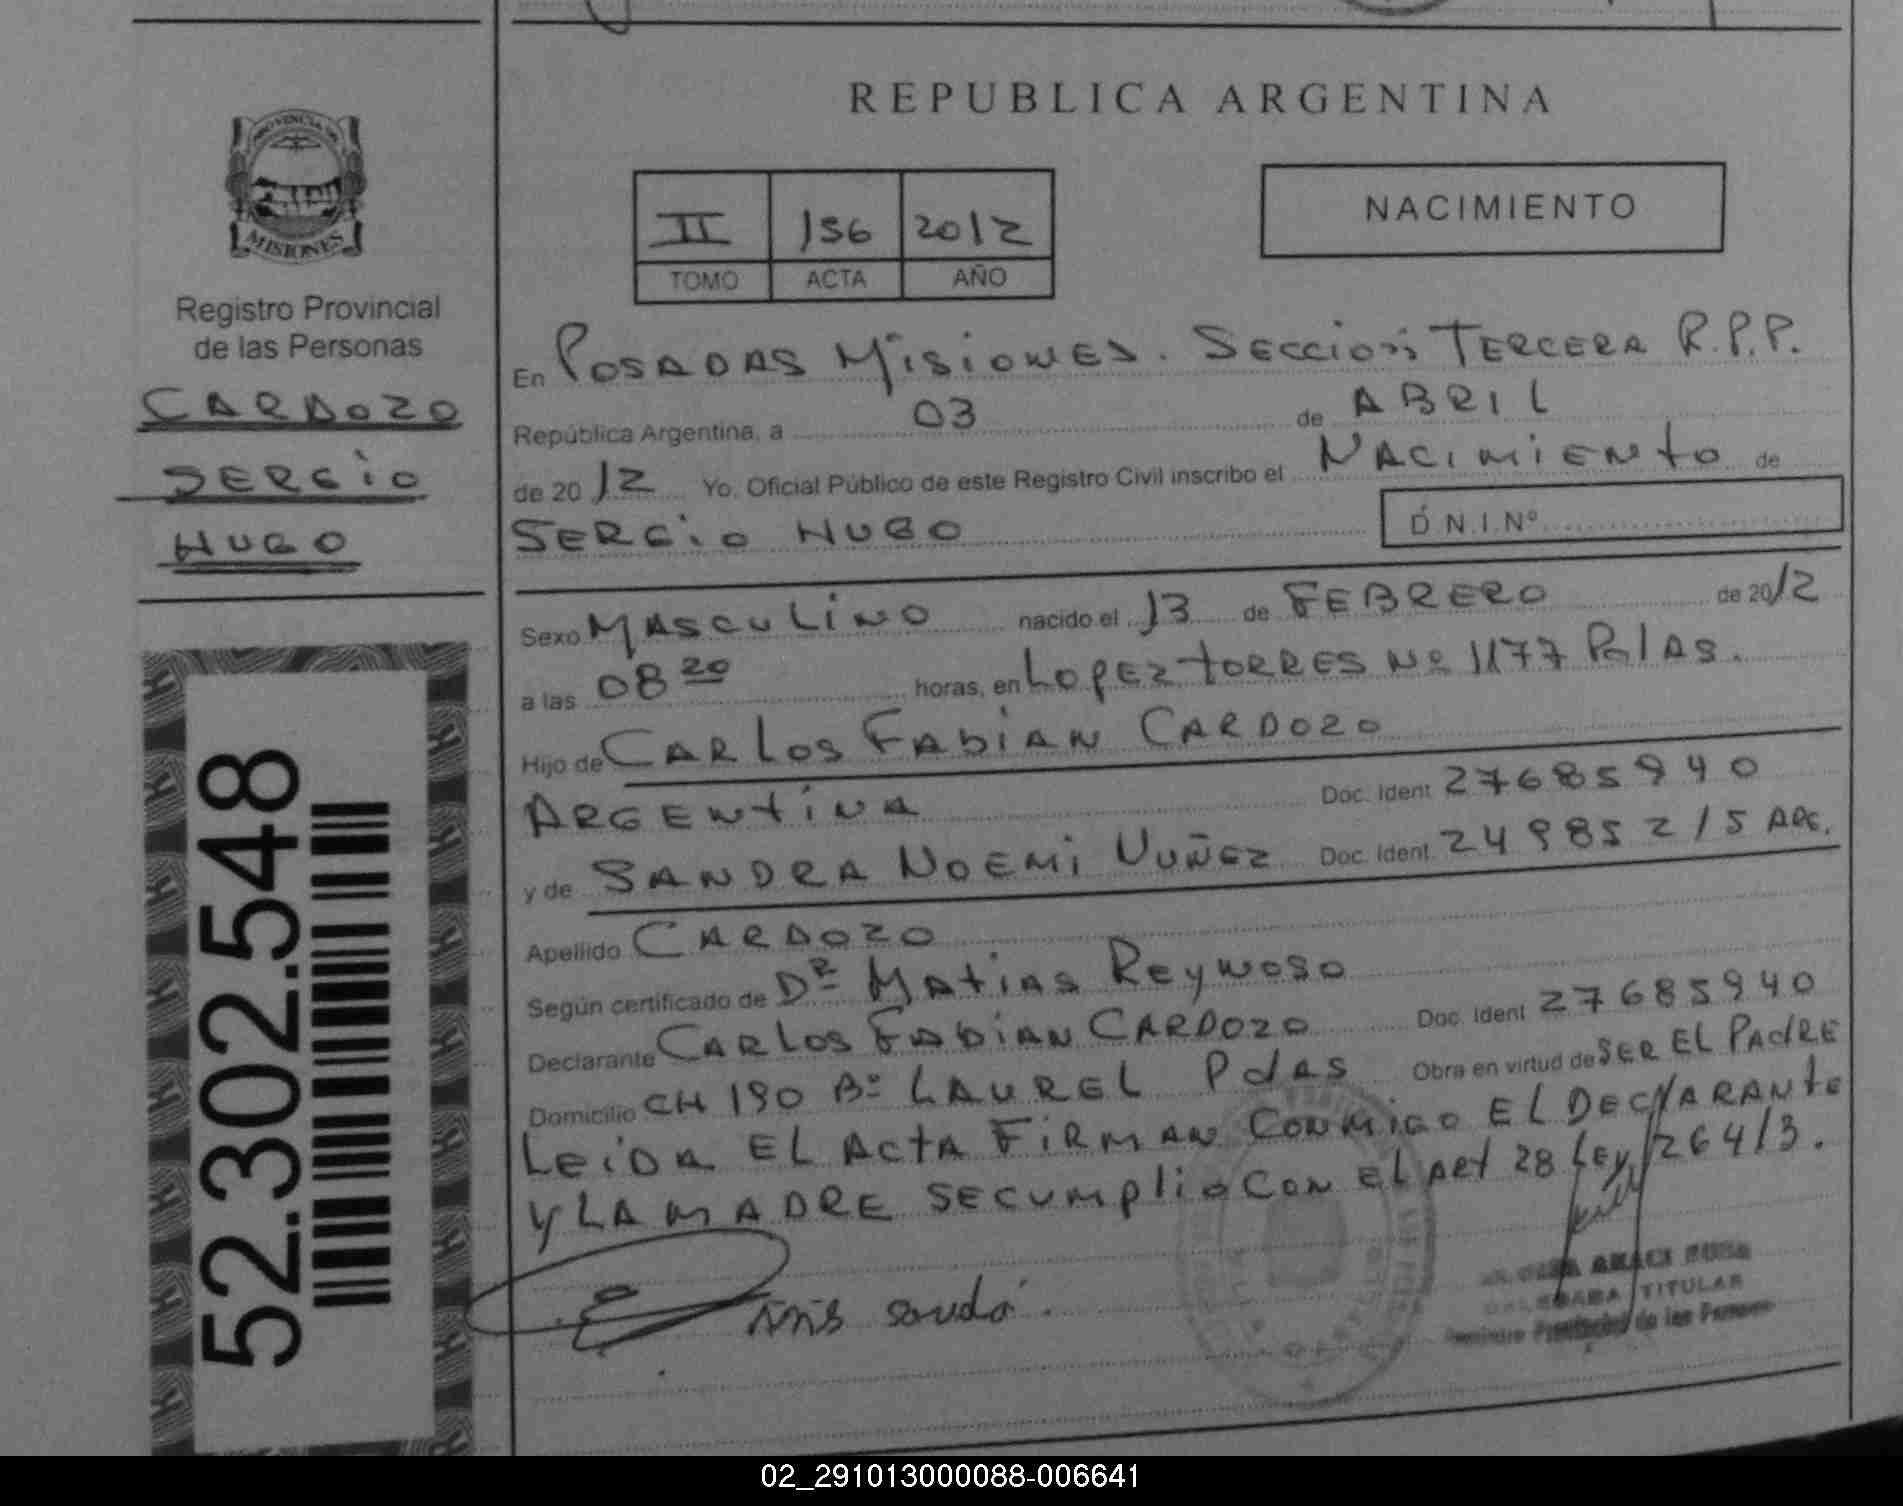 PROVINCIA DE
MISIONES
Registro Provincial
de las Personas
CARDOZO
SERGIO
HUGO
52.302.548
REPUBLICA ARGENTINA
II 156 2012
TOMO ACTA AÑO
NACIMIENTO
En POSADAS MISIONES. SECCION TERCERA R.P.P.
República Argentina, a 03 de ABRIL
de 2012 Yo, Oficial Público de este Registro Civil inscribo el NACIMIENTO de
SERGIO HUGO D.N.I.Nº
Sexo MASCULINO nacido el 13 de FEBRERO de 2012
a las 08 20 horas, en LOPEZ TORRES Nº 1177 Pdas.
Hijo de CARLOS FABIAN CARDOZO
ARGENTINA Doc. Ident 27685940
y de SANDRA NOEMI NUÑEZ Doc. Ident. 24985215 ARG.
Apellido CARDOZO
Según certificado de DR MATIAS REYNOSO
Declarante CARLOS FABIAN CARDOZO Doc. Ident 27685940
Domicilio CH 190 Bº LAUREL Pdas Obra en virtud de SER EL PADRE
LEIDA EL ACTA FIRMAN CONMIGO EL DECLARANTE
Y LA MADRE SE CUMPLIO CON EL ART 28 LEY 26413.
TITULAR
Provincial de las Personas
02_291013000088-006641